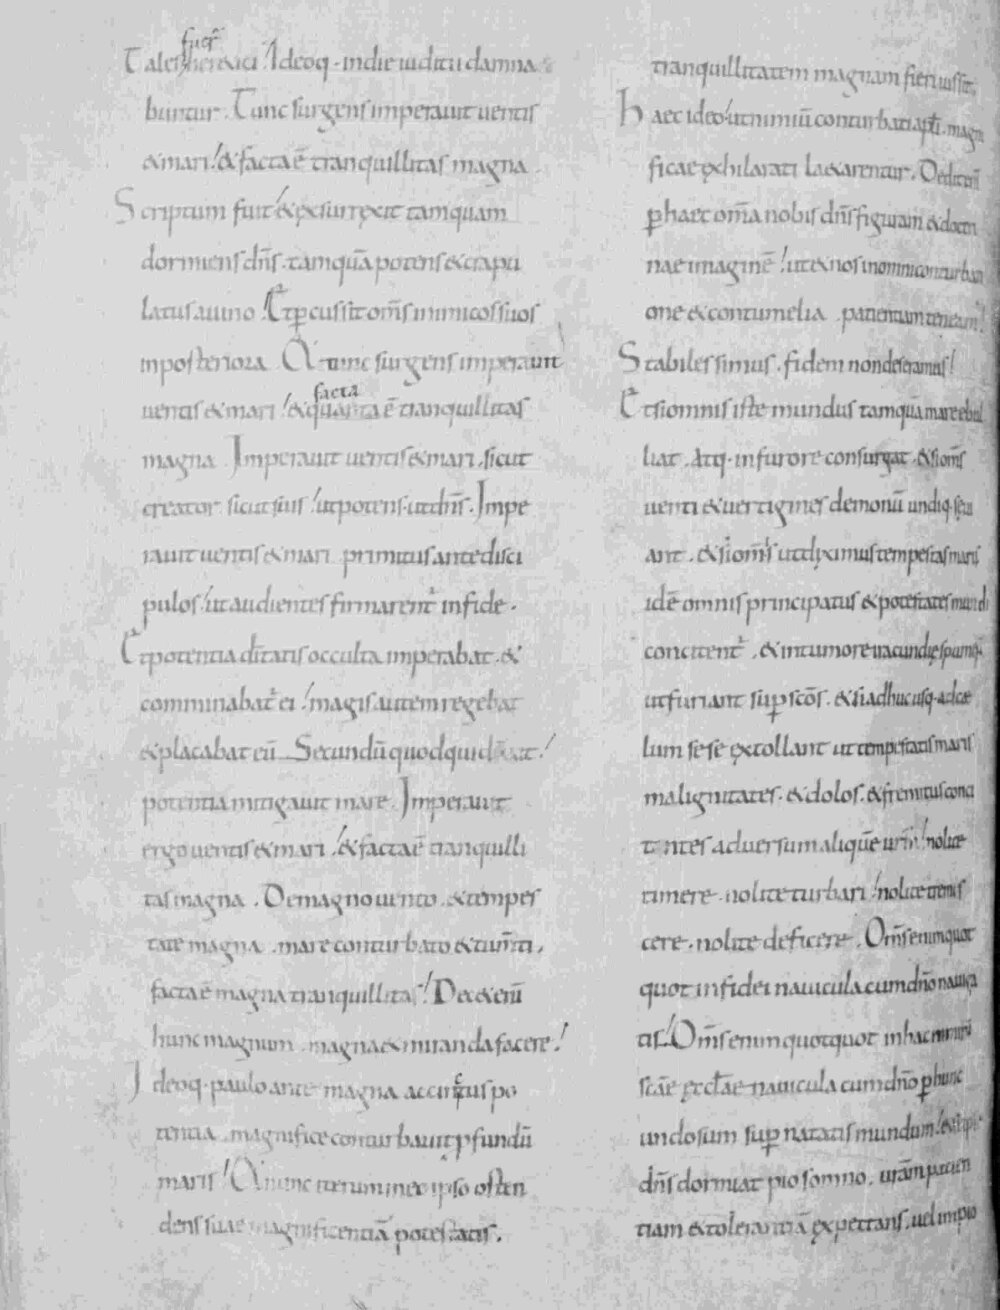 fuer̄
Tales heretici. Ideoq· in die iuditii damna
buntur. Tunc surgens imperauit uentis
& mari. & facta ē tranquillitas magna.
Scriptum fuit & exsurrexit tamquam
dormiens dn̄s. tamquā potens & crapu
latus a uino. Et ꝑcussit om̄s inimicos suos
in posteriora. At tunc surgens imperauit
facta
uentis & mari. & quanta ē tranquillitas
magna. Imperauit uentis & mari. sicut
creator sicut sius. ut potens. ut dn̄s. Impe
rauit uentis & mari primitus ante disci
pulos. ut audientes firmarent᷑ in fide.
Et potentia diītatis occulta imperabat. &
comminabat᷑ ei. magis autem regebat
& placabat eū. Secundū quod quid
potentia mitigauit mare. Imperauit
ergo uentis & mari. & facta ē tranquilli
tas magna. De magno uento. & tempes
tate magna. mare conturbato & tum̄ti.
facta ē magna tranquillitas. Dec& enī
hunc magnum. magna & miranda facere.
Ideoq· paulo ante magna accinctus po
tentia. magnifice conturbauit ꝓfundū
maris. At nunc iterum inec ipso osten
dens suae magnificentiā potestatis.
tranquillitatem magnam fieri iussit,
Haec ideo ut nimiū conturbati apt̄i. magni
ficae exhilarati laxarentur. Dedit enī
ꝑ haec om̄a nobis dn̄s figuram & doctri
nae imaginē. ut & nos in omni conturbati
one & contumelia. patientiam teneam᷑.
Stabiles simus. fidem non deseramus.
Et si omnis iste mundus tamquā mare ebul
liat. Atq· in furore consurgat. & si om̄s
uenti & uertigines demonū undiq· seui
ant. & si om̄is ut diximus tempestas maris
idē omnis principatus & potestates mundi
concitent᷑. & in tumore iracundię spumę
ut furiant suꝑ sc̄os. & si adhuc usq· ad cae
lum sese extollant ut tempestatis maris
malignitates. & dolos. & fremitus conci
tantes aduersum aliquē ur̄m. nolite
timere. nolite turbari. nolite trepis
cere. nolite deficere. Om̄s enim quot
quot in fidei nauicula cum dn̄o nauiga
tis. Om̄s enim quotquot in hac
sc̄ae eccl̄ae nauicula cum dn̄o ꝑ hunc
undosum suꝑ natatis mundum.
dn̄s dormiat pio somno. ur̄am pacien
tiam & tolerantiā expectans. uel impio